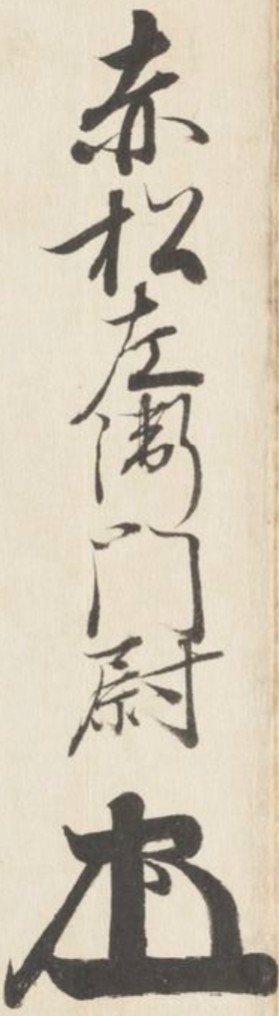 赤松左衛門尉